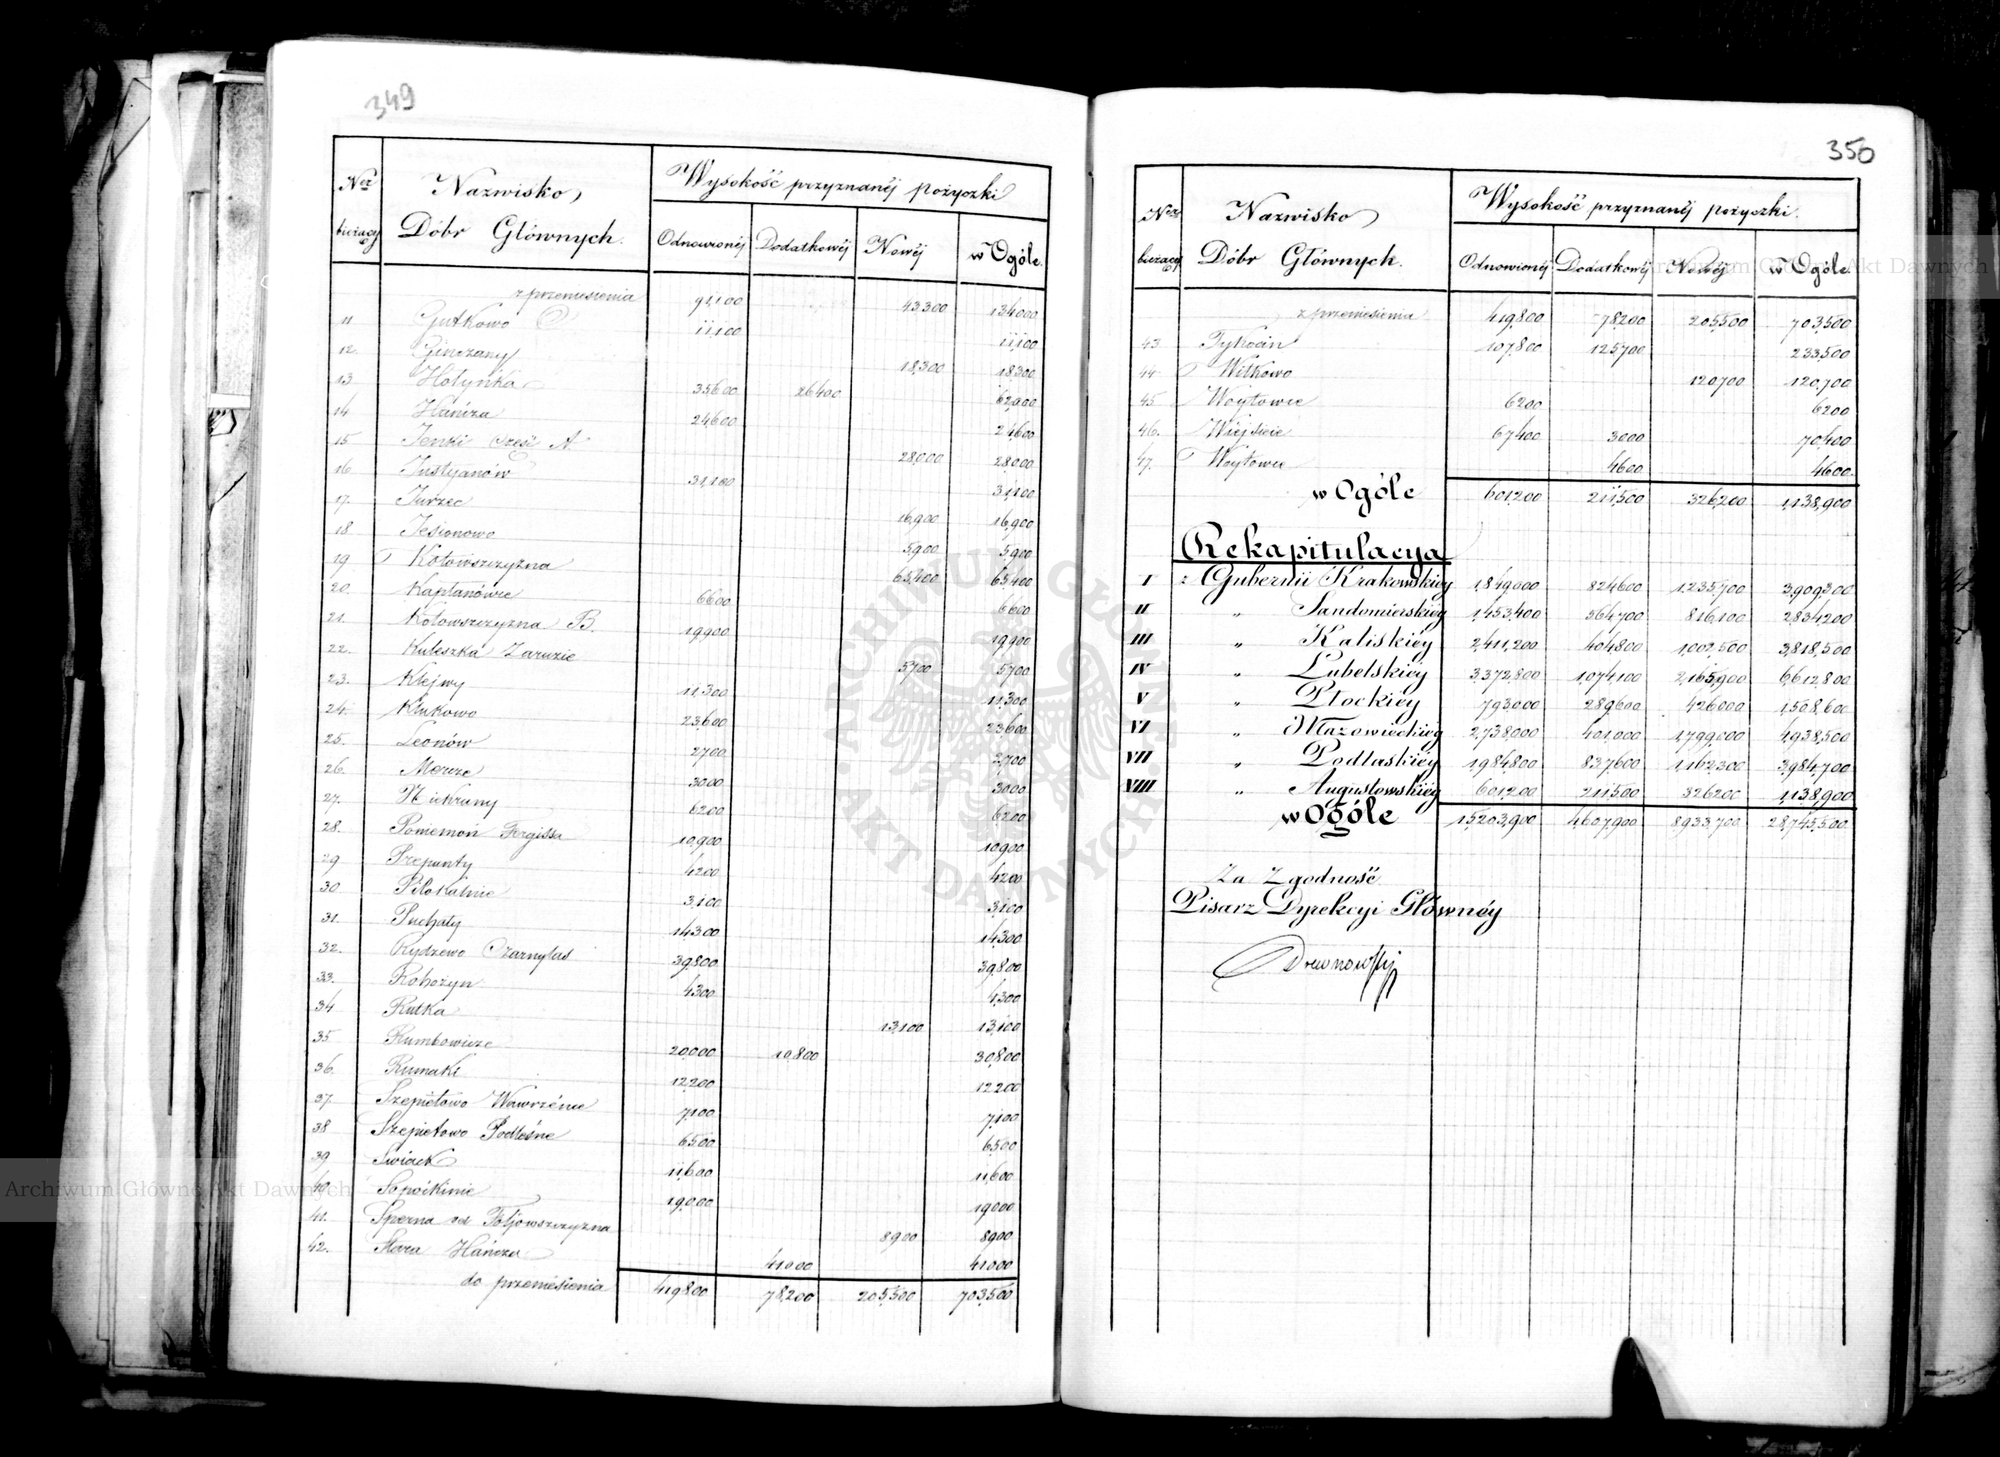 349
Ner bieżący
Nazwisko Dóbr Głównych.
Wysokość przyznanéj pożyczki
Odnowionéj Dodatkowéj Nowéj w Ogóle.
z przeniesienia 91,100 43300 134000
11 Gutkowo 11,100 11,100
12. 18,300 18,300
13 Hołynka 35,600 26400 62,000
14 Hańcza 24,600 24,600
15 Jenki Część A 28,000 28,000
16 Justyanów 31,100 31,100
17. Jurzec 16,900 16,900
18 Jesionowo 5,900 5,900
19. Kotowszczyzna 65,400 65,400
20. Kaptanówce 6600 6600
21. Kotowszczyzna B. 19,900 19,900
22. Kuleszka Zaruzie 5700 5700
23. Klejwy 11,300 11,300
24. Klukowo 23,600 23,600
25. Leonów 2700 2,700
26. Merecze 3000 3000
27. 6200 6200
28. Poniemon Fergissa 10,900 10,900
29 Prepunty 4200 4200
30 Pilokalnie 3,100 3,100
31. Puchały 14300 14,300
32. Rydzewo Czarnylas 39,800 39,800
33. Rohożyn 4300 4,300
34 Rutka 13,100 13,100
35 Rumbowicze 20,000 10,800 30,800
36. Rumaki 12,200 12200
37. Szepietowo Wawrzénce 7,100 7,100
38 Szepietowo Podleśne 6500 6,500
39 Swiack 11,600 11,600
40. Sopoćkinie 19,000 19000
41. Sporna vel 8900 8,900
42. Stara Hańcza 41000 41000
do przeniesienia 419800 78,200 205,500 703,500
350
Ner bieżący
Nazwisko Dóbr Głównych.
Wysokość przyznanéj pożyczki.
Odnowionéj Dodatkowéj Nowéj w Ogóle.
z przeniesienia 419,800 78200 205,500 703,500
43 Tykocin 107,800 125700 233,500
44 Witkowo 120,700 120,700
45 Woytowce 6200 6200
46. Wiejsieie 67400 3000 70,400
47. Woytowce 4600 4600
w Ogóle 601,200 211,500 326,200 1,138,900
Rekapitulacya
I z Gubernii Krakowskiéy 1,849,000 824,600 1,235,700 3,909,300
II " Sandomierskiéy 1,453,400 564,700 816,100 2834200
III " Kaliskiéy 2,411,200 404,800 1,002,500 3,818,500
IV " Lubelskiéy 3,372,800 1,074,100 2,165,900 6,612,800
V " Płockiéy 793,000 289,600 426000 1,508,600
VI " Mazowieckiéy 2,738,000 401,000 1,799,000 4,938,500
VII " Podlaskiéy 1,984,800 837,600 1,162,300 3,984,700
VIII " Augustowskiéy 601,200 211,500 326200 1,138,900
w Ogóle 15,203,900 4,607,900 8933,700 28,745,500
Za Zgodność
Pisarz Dyrekcyi Głównéy
Drewnowski
Archiwum Główne Akt Dawnych
Archiwum Główne Akt Dawnych
ARCHIWUM GŁÓWNE AKT DAWNYCH